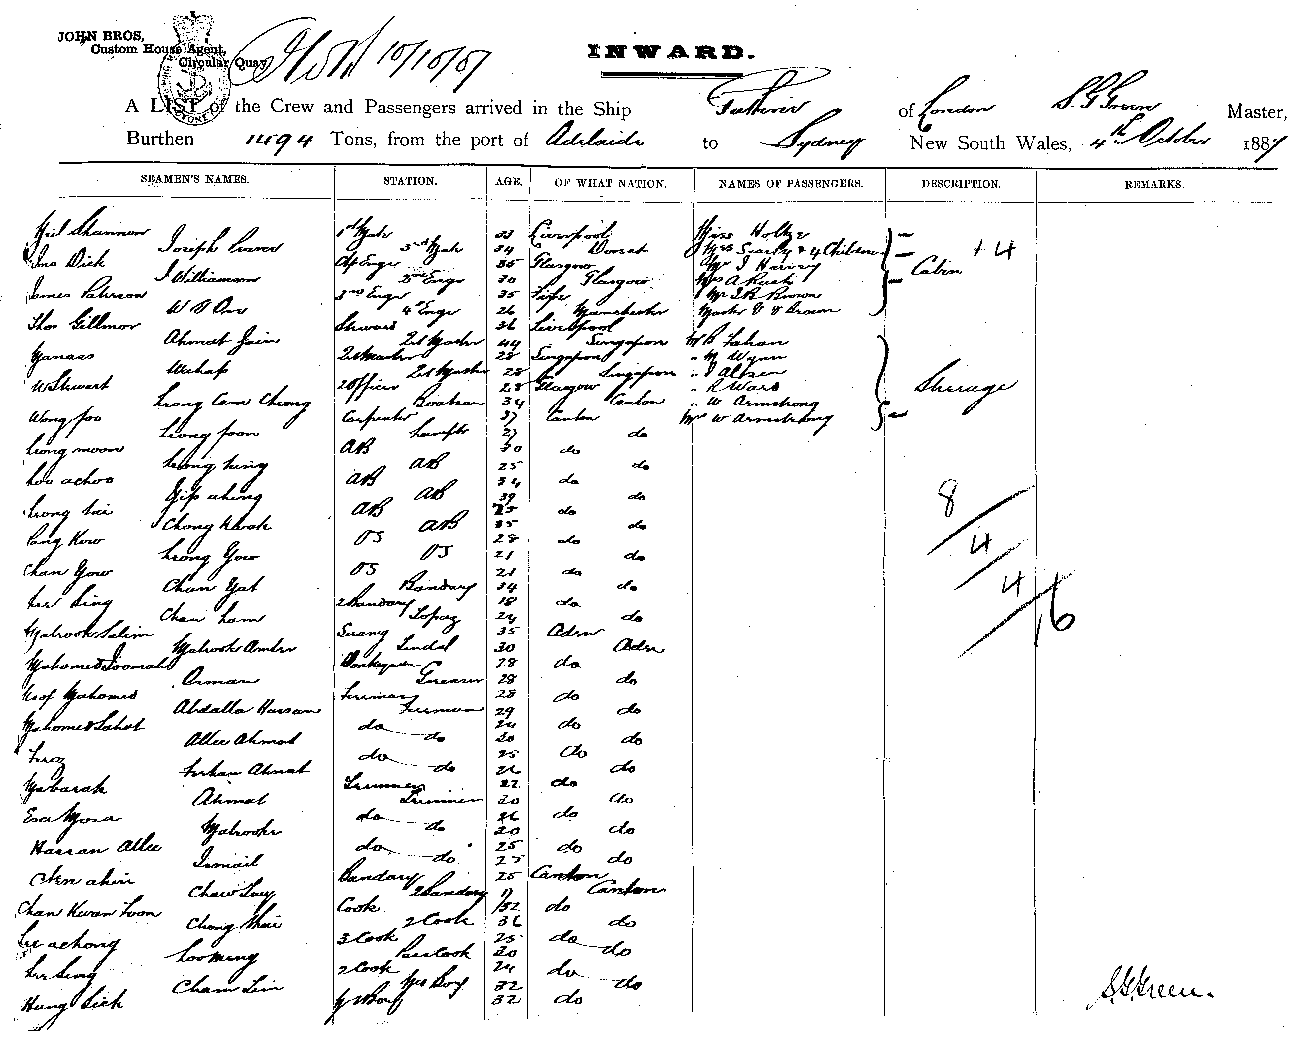 JOHN BROS,
Custom House Agent,
Circular Quay
10/10/87
INWARD.
A LIST of the Crew and Passengers arrived in the Ship of London S. G. Green Master,
Burthen 1494 Tons, from the port of Adelaide to Sydney New South Wales, 4th October 1887
SEAMEN'S NAMES. STATION. AGE. OF WHAT NATION. NAMES OF PASSENGERS. DESCRIPTION. REMARKS.
Neil Shannon 1st Mate 33 Liverpool Miss Holtze
Joseph 2nd Mate 34 Dorset Mrs & 4 Children + 4
Jno Dick Engr 35 Glasgow Mr J Harvey Cabin
J Williamson 2nd Engr 30 Glasgow Mrs A Rusk
James Paterson 3rd Engr 35 Fife Mr J R Brown
W D Orr 4th Engr 26 Manchester Brown
Thos Gillmor Steward 36 Liverpool
Ahmat Jain 44 Singapore Mr B Fahan
28 Singapore " M Wynn
Wahap 28 Singapore "
W Stewart 2 Officer 28 Glasgow " R Ward Steerage
Leong Cam Cheong Boatswn 34 Canton " W Armstrong
Wong foo Carpenter 37 Canton Mrs W Armstrong
Leong foon Lamptr 27 do
Leong moon AB 30 do
Leong hing AB 25 do
Loo achoo AB 34 do
Yip ahing AB 39 do 8
Leong tai AB 25 do
Chong kwok AB 35 do
Pang Kow OS 28 do 4
Leong Yow OS 21 do
Chan Yow OS 21 do
Chan Yat Bandary 34 do 4
Lee Sing 2 Bandary 18 do
Chan ham Topaz 24 do 16
Mabrook Selim Serang 35 Aden
Mabrook Amber Tindal 30 Aden
Mahomed Donkeyman 28 do
Osman Greaser 28 do
Usof Mahomed Fireman 28 do
Abdalla Hassan Fireman 29 do
Mahomed Sahet do 24 do
Allee Ahmat do 30 do
Feroz do 25 do
Ferhan Ahmat do 26 do
Mabarak Trimmer 22 do
Ahmat Trimmer 20 do
Esa Mosa do 26 do
Mabrook do 20 do
Hassan Allee do 25 do
Ismail do 25 do
Bandary 25 Canton
Chaw Luey 2 Bandary 17 Canton
Chan Kwan Foon Cook 32 do
Chong 2 Cook 36 do
Lee achong 3 Cook 25 do
Loo ming Cook 30 do
Lee Sing 2 Cook 24 do
Cham Lin Mess Boy 32 do
Hung Sick Boy 32 do
S. G. Green.